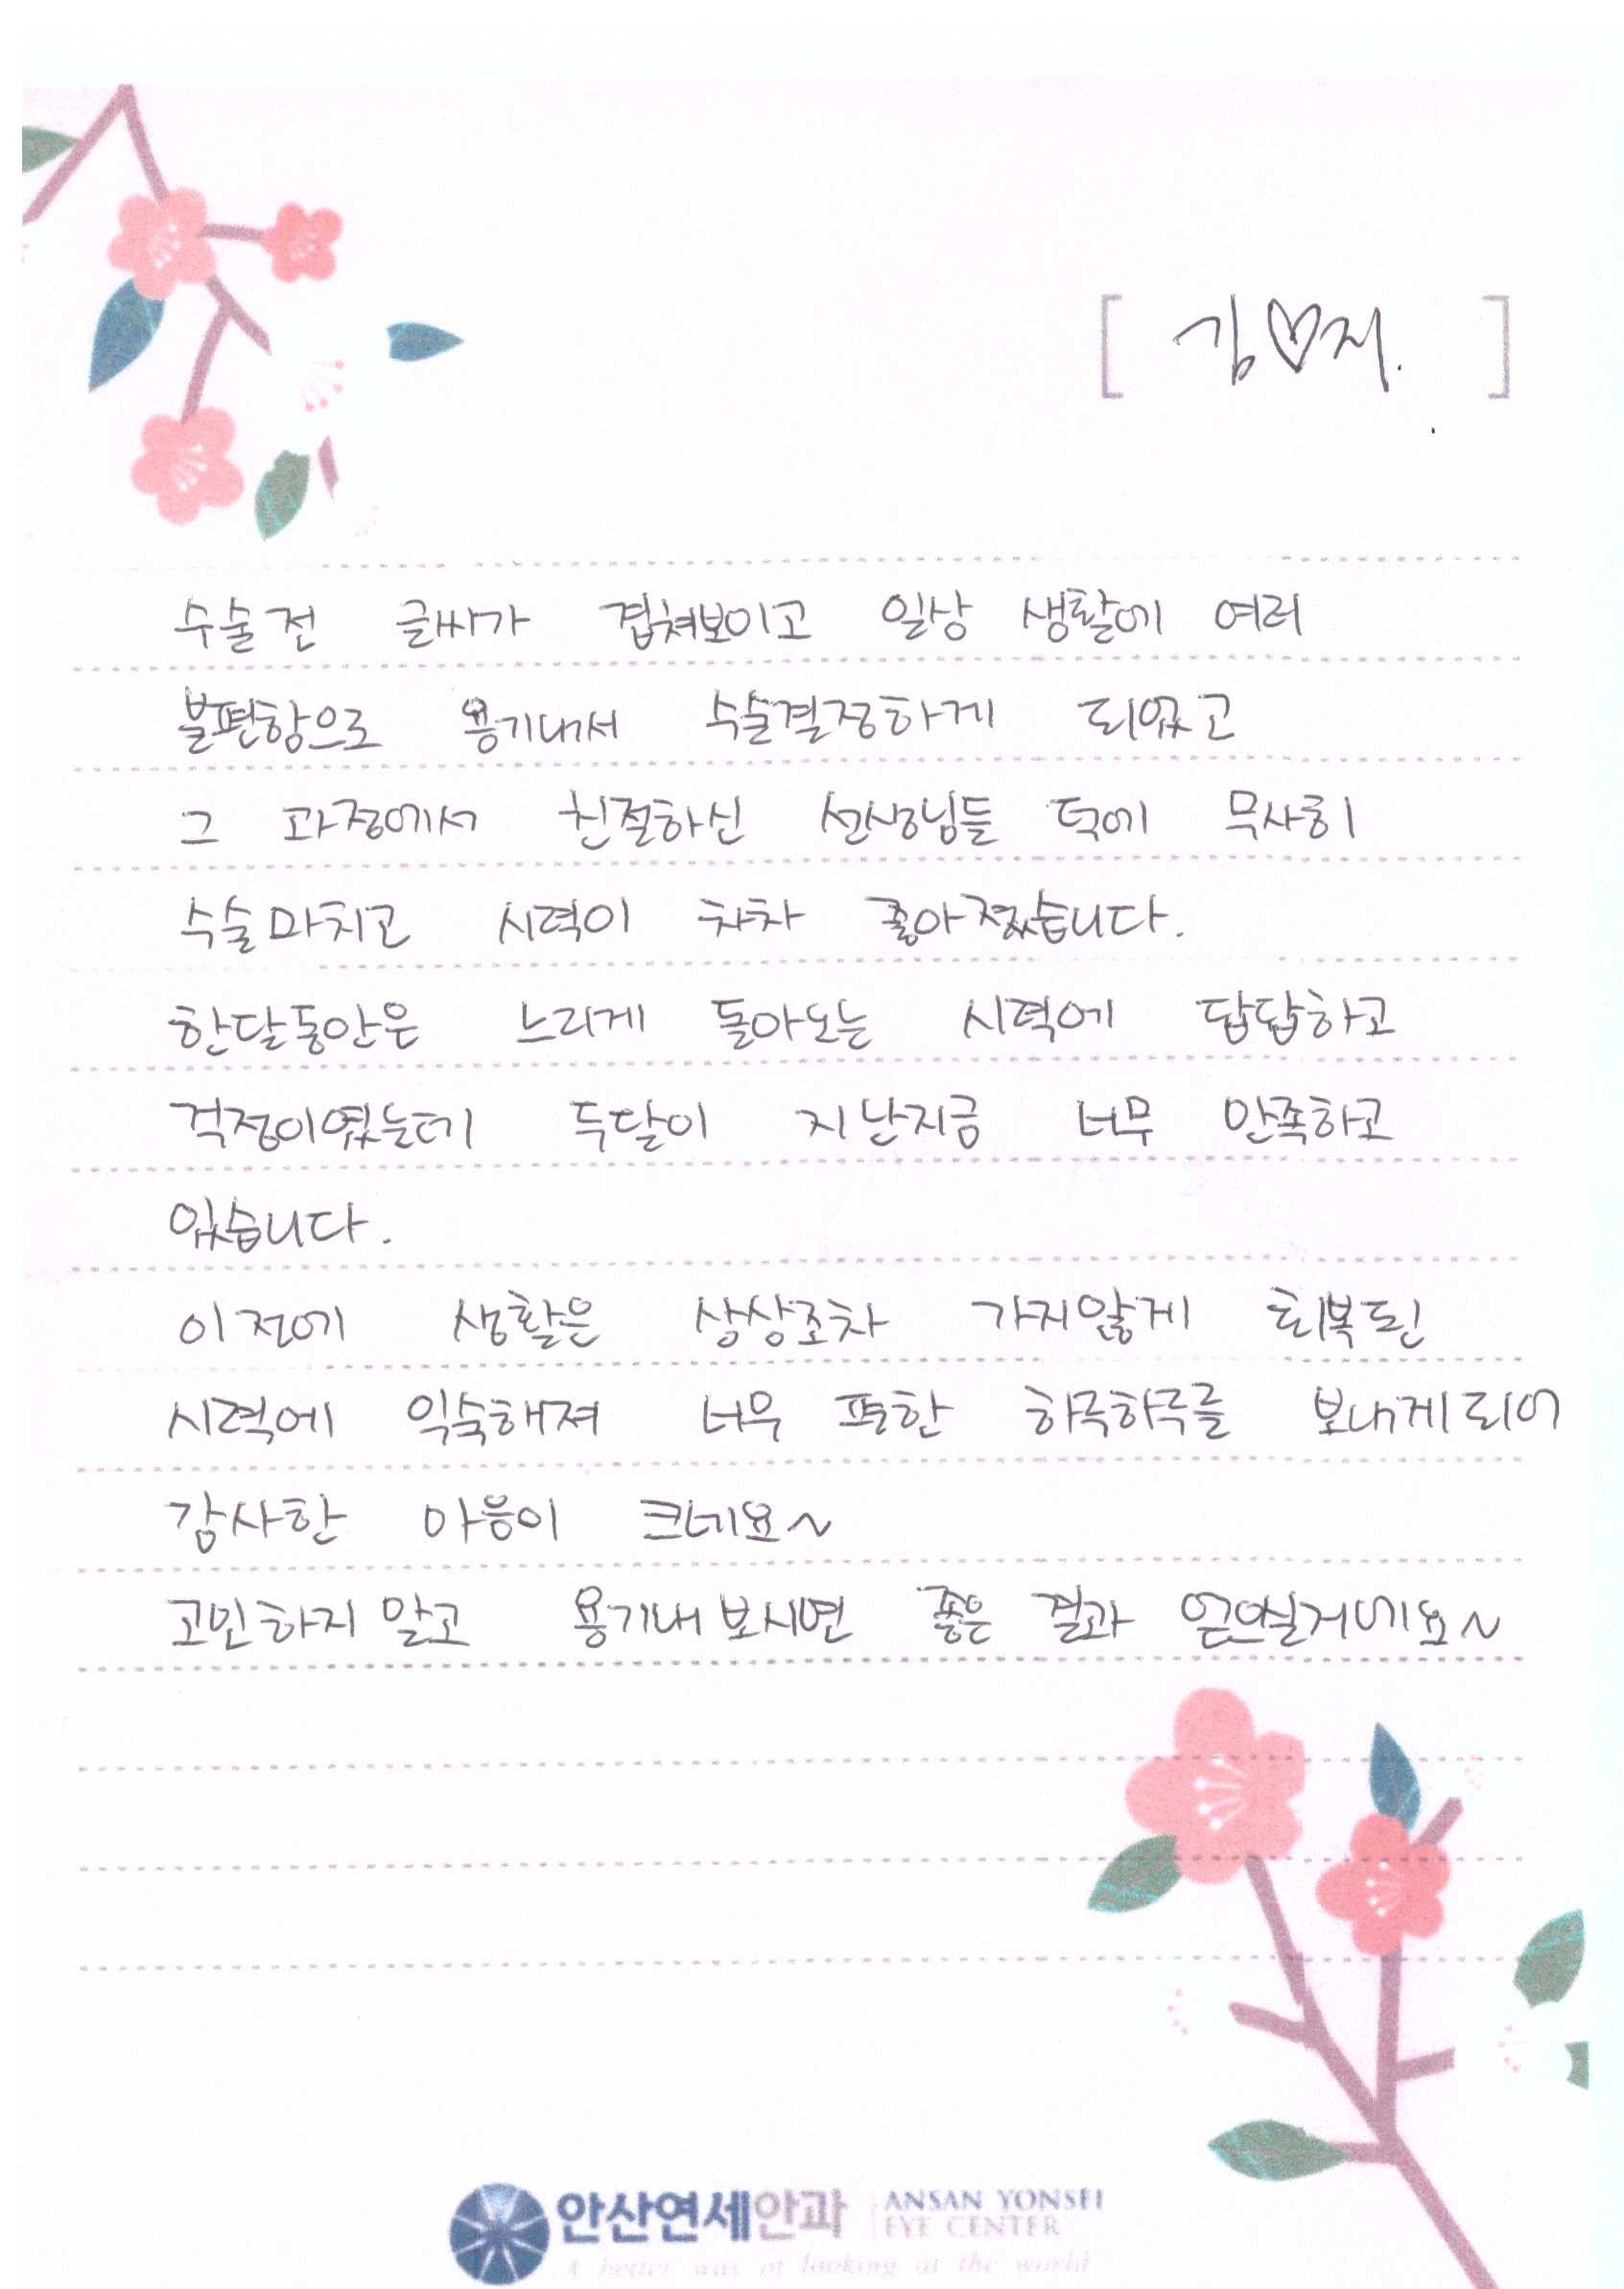 [ 김♡지. ]
수술전 글씨가 겹쳐보이고 일상 생활에 여러
불편함으로 용기내서 수술결정하게 되었고
그 과정에서 친절하신 선생님들 덕에 무사히
수술마치고 시력이 차차 좋아졌습니다.
한달동안은 느리게 돌아오는 시력에 답답하고
걱정이였는데 두달이 지난지금 너무 만족하고
있습니다.
이전에 생활은 상상조차 가지않게 회복된
시력에 익숙해져 너무 편한 하루하루를 보내게되어
감사한 마음이 크네요~
고민하지 말고 용기내 보시면 좋은 결과 얻으실거네요~
안산연세안과 ANSAN YONSEI
EYE CENTER
A better way of looking at the world